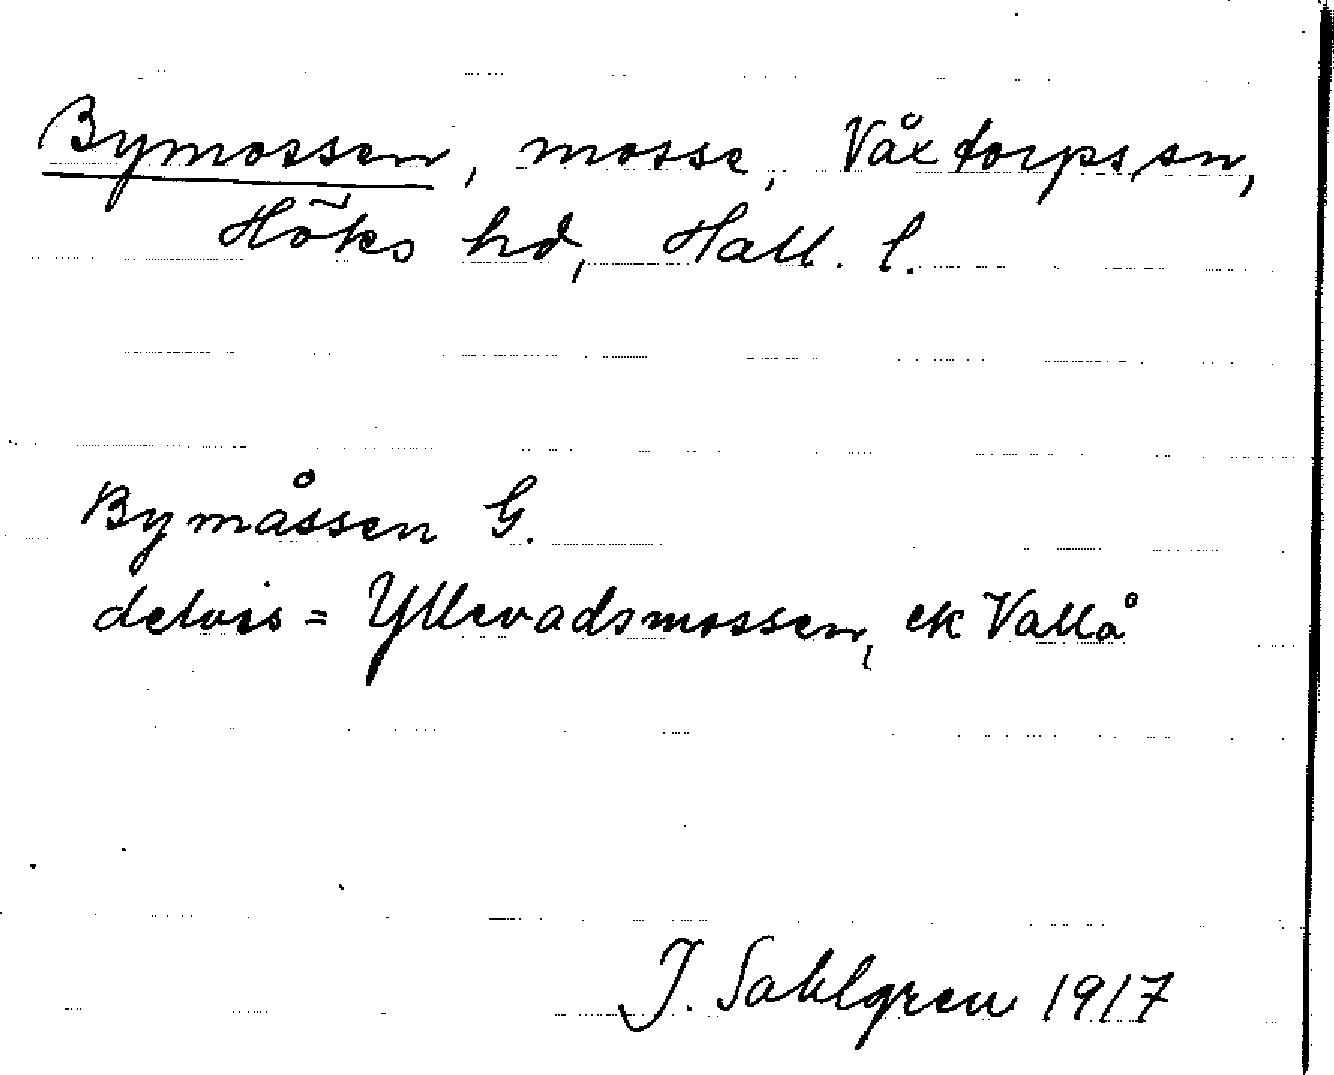 Bymossen, mosse, Våxtorps sn,
Höks hd, Hall. l.
Bymåssen G.
delvis = Yllevadsmossen, ek Vallå
J. Sahlgren 1917